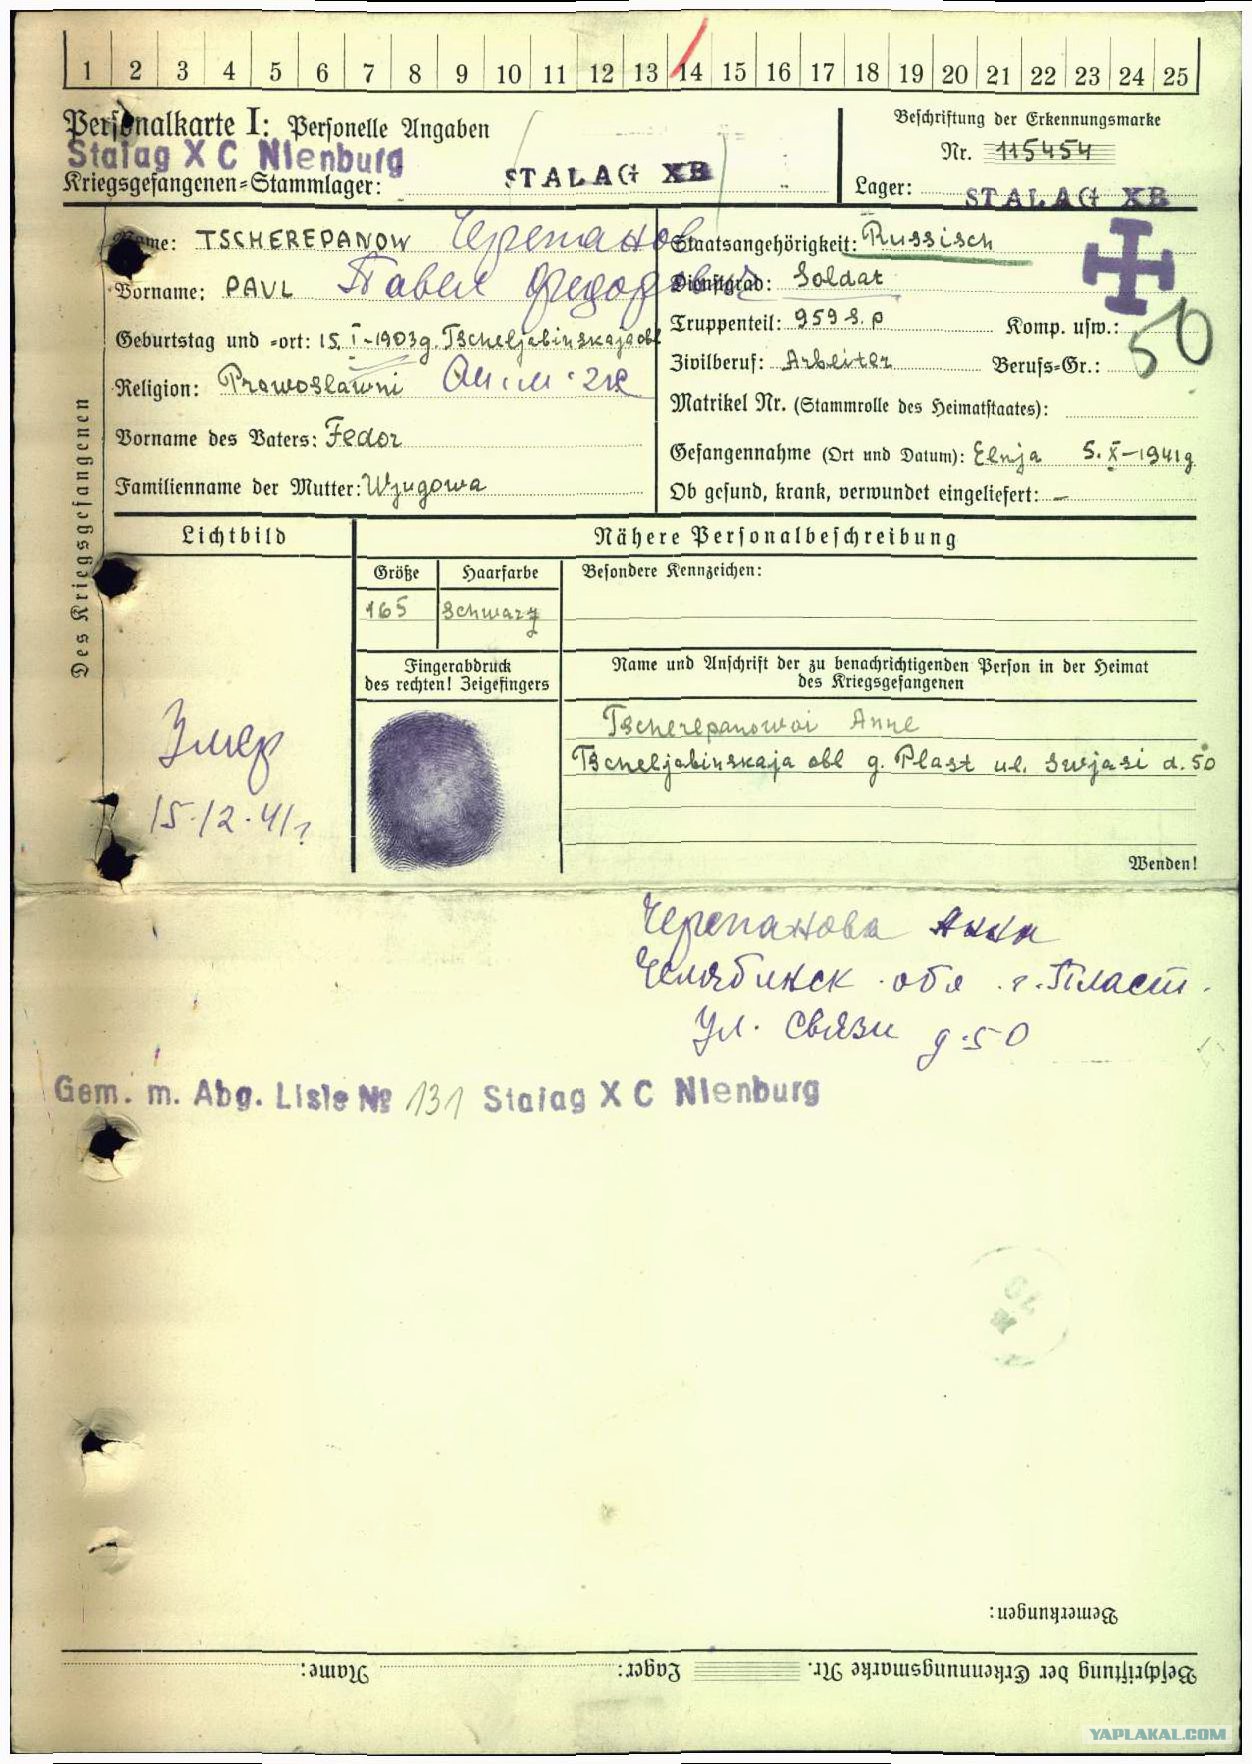 1 2 3 4 5 6 7 8 9 10 11 12 13 14 15 16 17 18 19 20 21 22 23 24 25
Personalkarte I: Personelle Angaben
Stalag X C Nienburg
Kriegsgefangenen-Stammlager: STALAG XB
Beschriftung der Erkennungsmarke
Nr. 115454
Lager: STALAG XB
Des Kriegsgefangenen
Name: TSCHEREPANOW Черепанов
Vorname: PAUL Павел Федорович
Geburtstag und -ort: 15. I-1903g. Tscheljabinskaja obl
Religion: Prawoslawni
Vorname des Vaters: Fedor
Familienname der Mutter: Wjugowa
Staatsangehörigkeit: Russisch
Dienstgrad: Soldat
Truppenteil: 959 S.P Komp. usw.:
50
Zivilberuf: Arbeiter Berufs-Gr.:
Matrikel Nr. (Stammrolle des Heimatstaates):
Gefangennahme (Ort und Datum): Elnja 5. X-1941g
Ob gesund, krank, verwundet eingeliefert: –
Lichtbild
Nähere Personalbeschreibung
Größe Haarfarbe Besondere Kennzeichen:
165 Schwarz
Fingerabdruck
des rechten! Zeigefingers
Name und Anschrift der zu benachrichtigenden Person in der Heimat
des Kriegsgefangenen
Tscherepanowoi Anne
Tscheljabinskaja obl g. Plast ul. Swjasi d. 50
15.12.41г
Wenden!
Черепанова Анна
Челябинск. обл. г. Пласт.
Ул. Связи д. 50
Gem. m. Abg. Liste № 131 Stalag X C Nienburg
Bemerkungen:
Beschriftung der Erkennungsmarke Nr. Lager: Name:
YAPLAKAL.COM